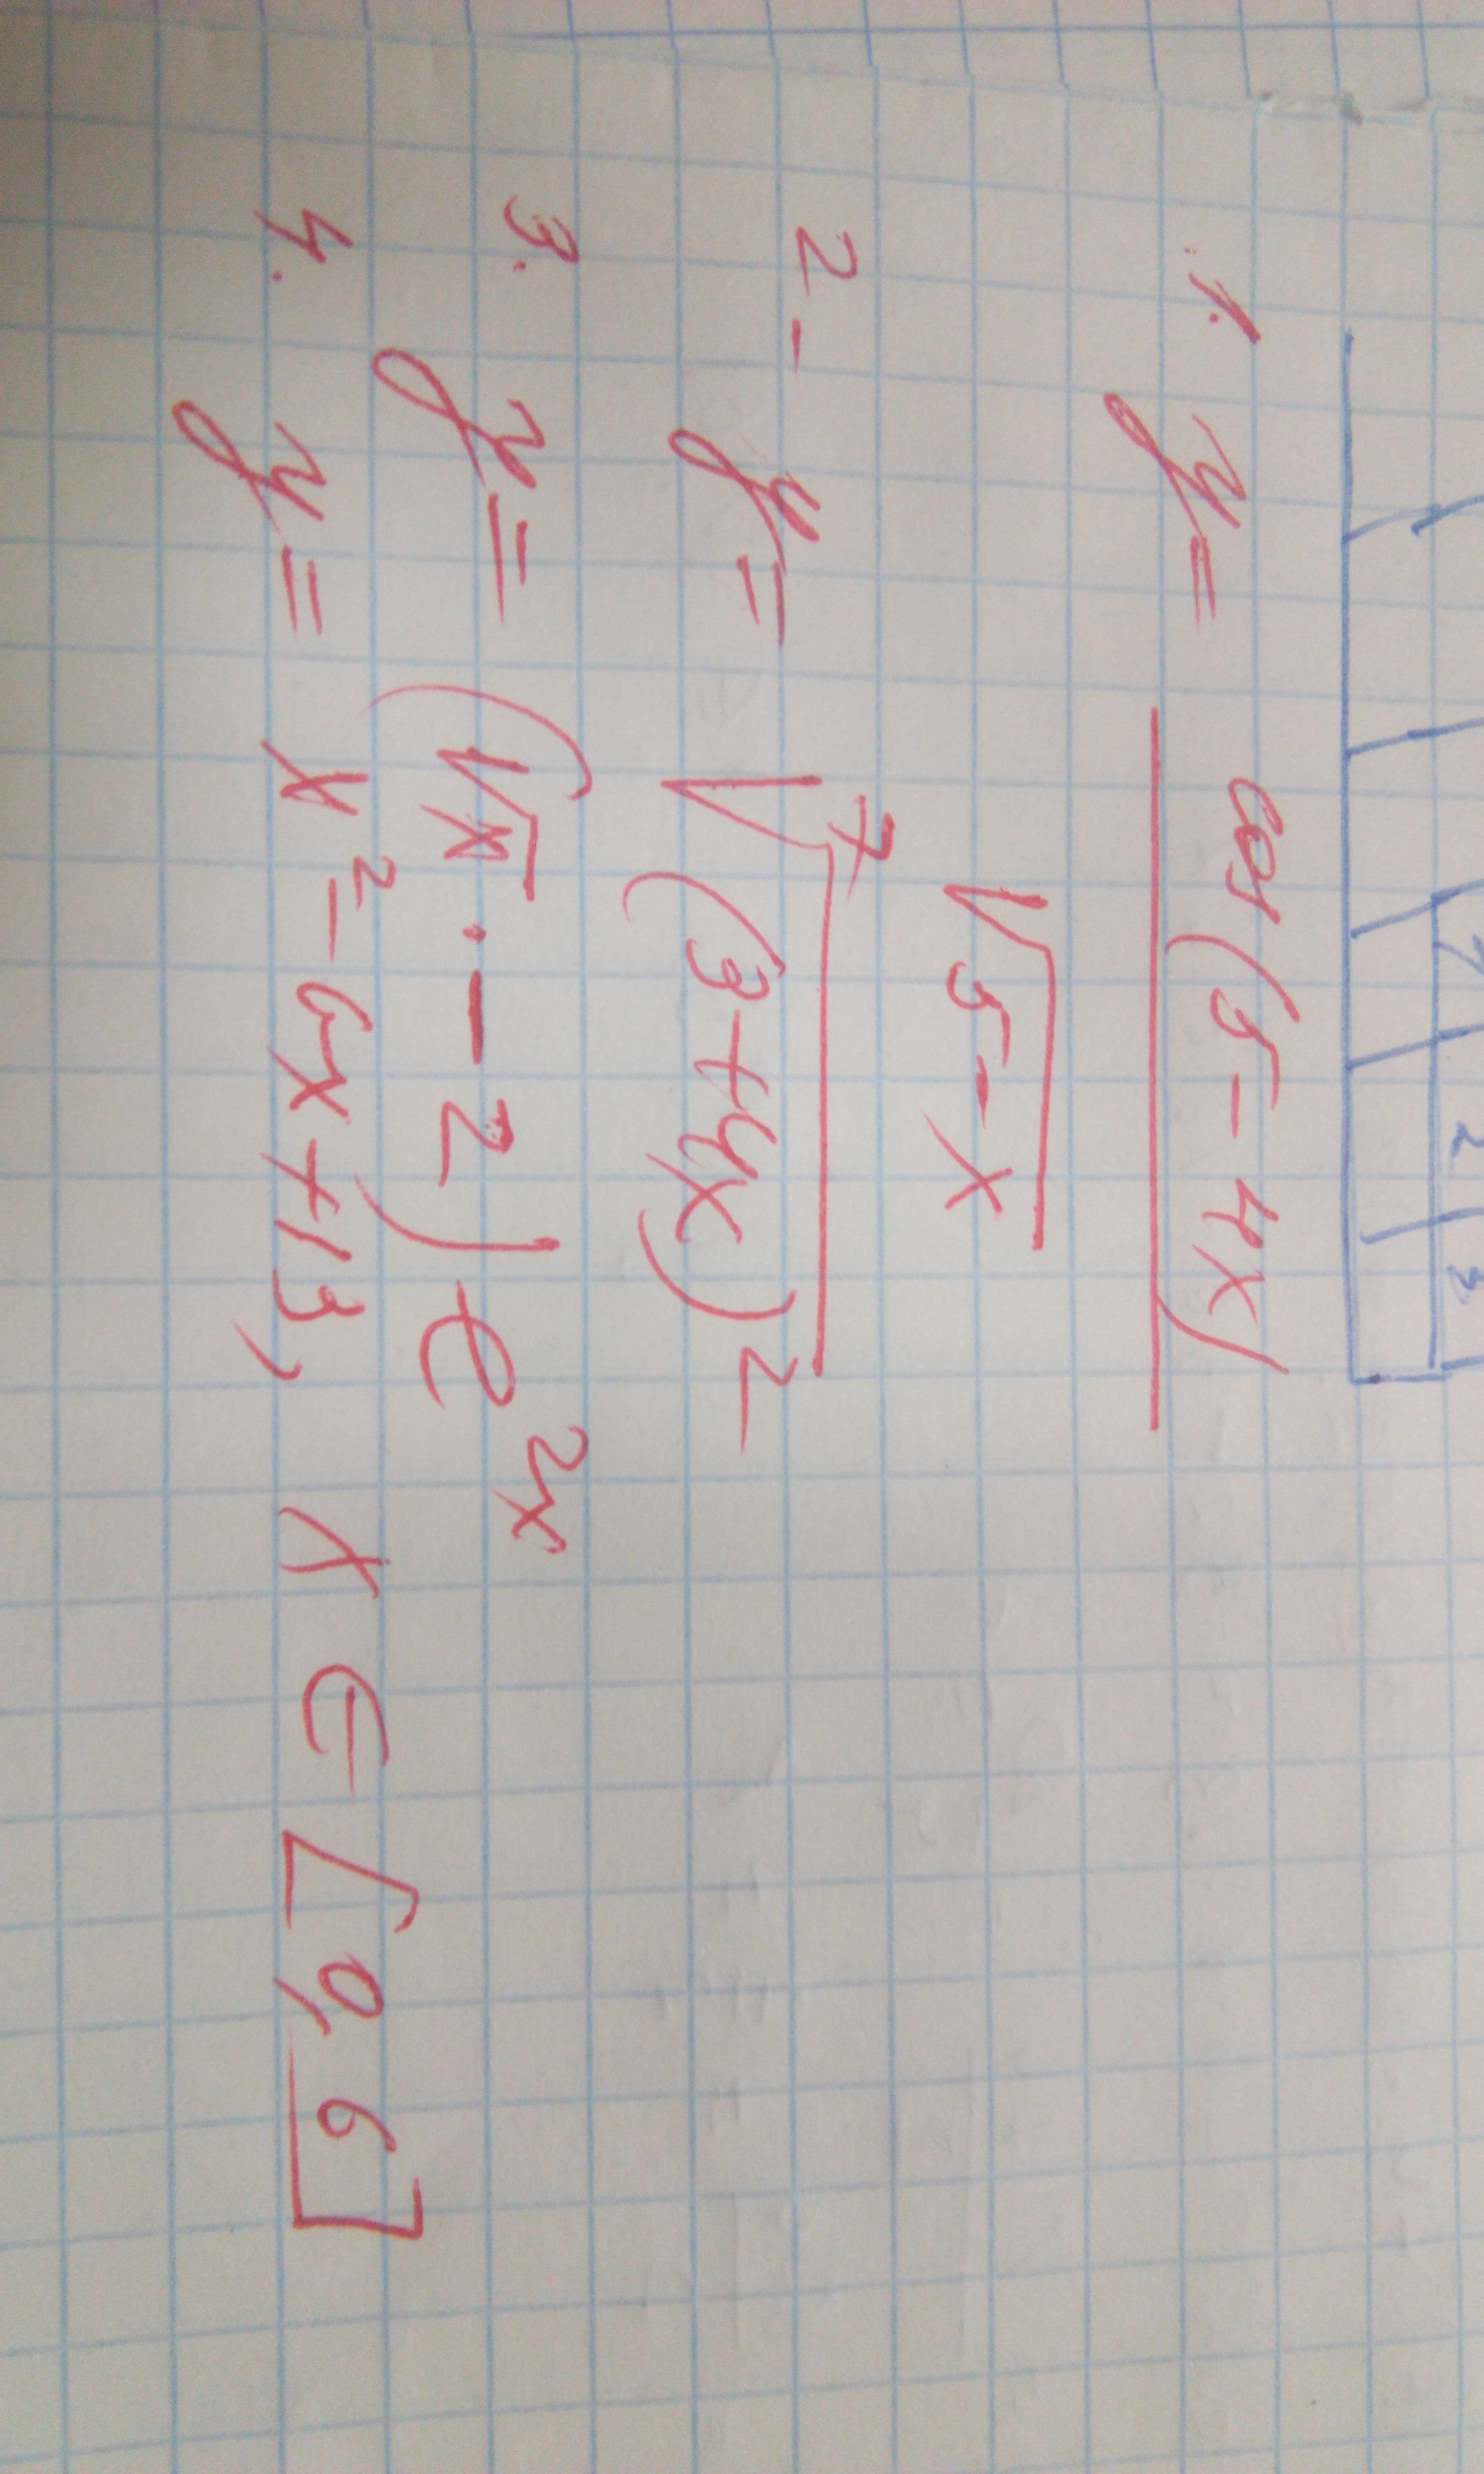 7 2 3
1. y = cos(5-4x) / √5-x
2- y = ⁷√(3+4x)²
3. y = (√x · - 2) e²ˣ
4. y = x² - 6x + 13, x ∈ [0, 6]